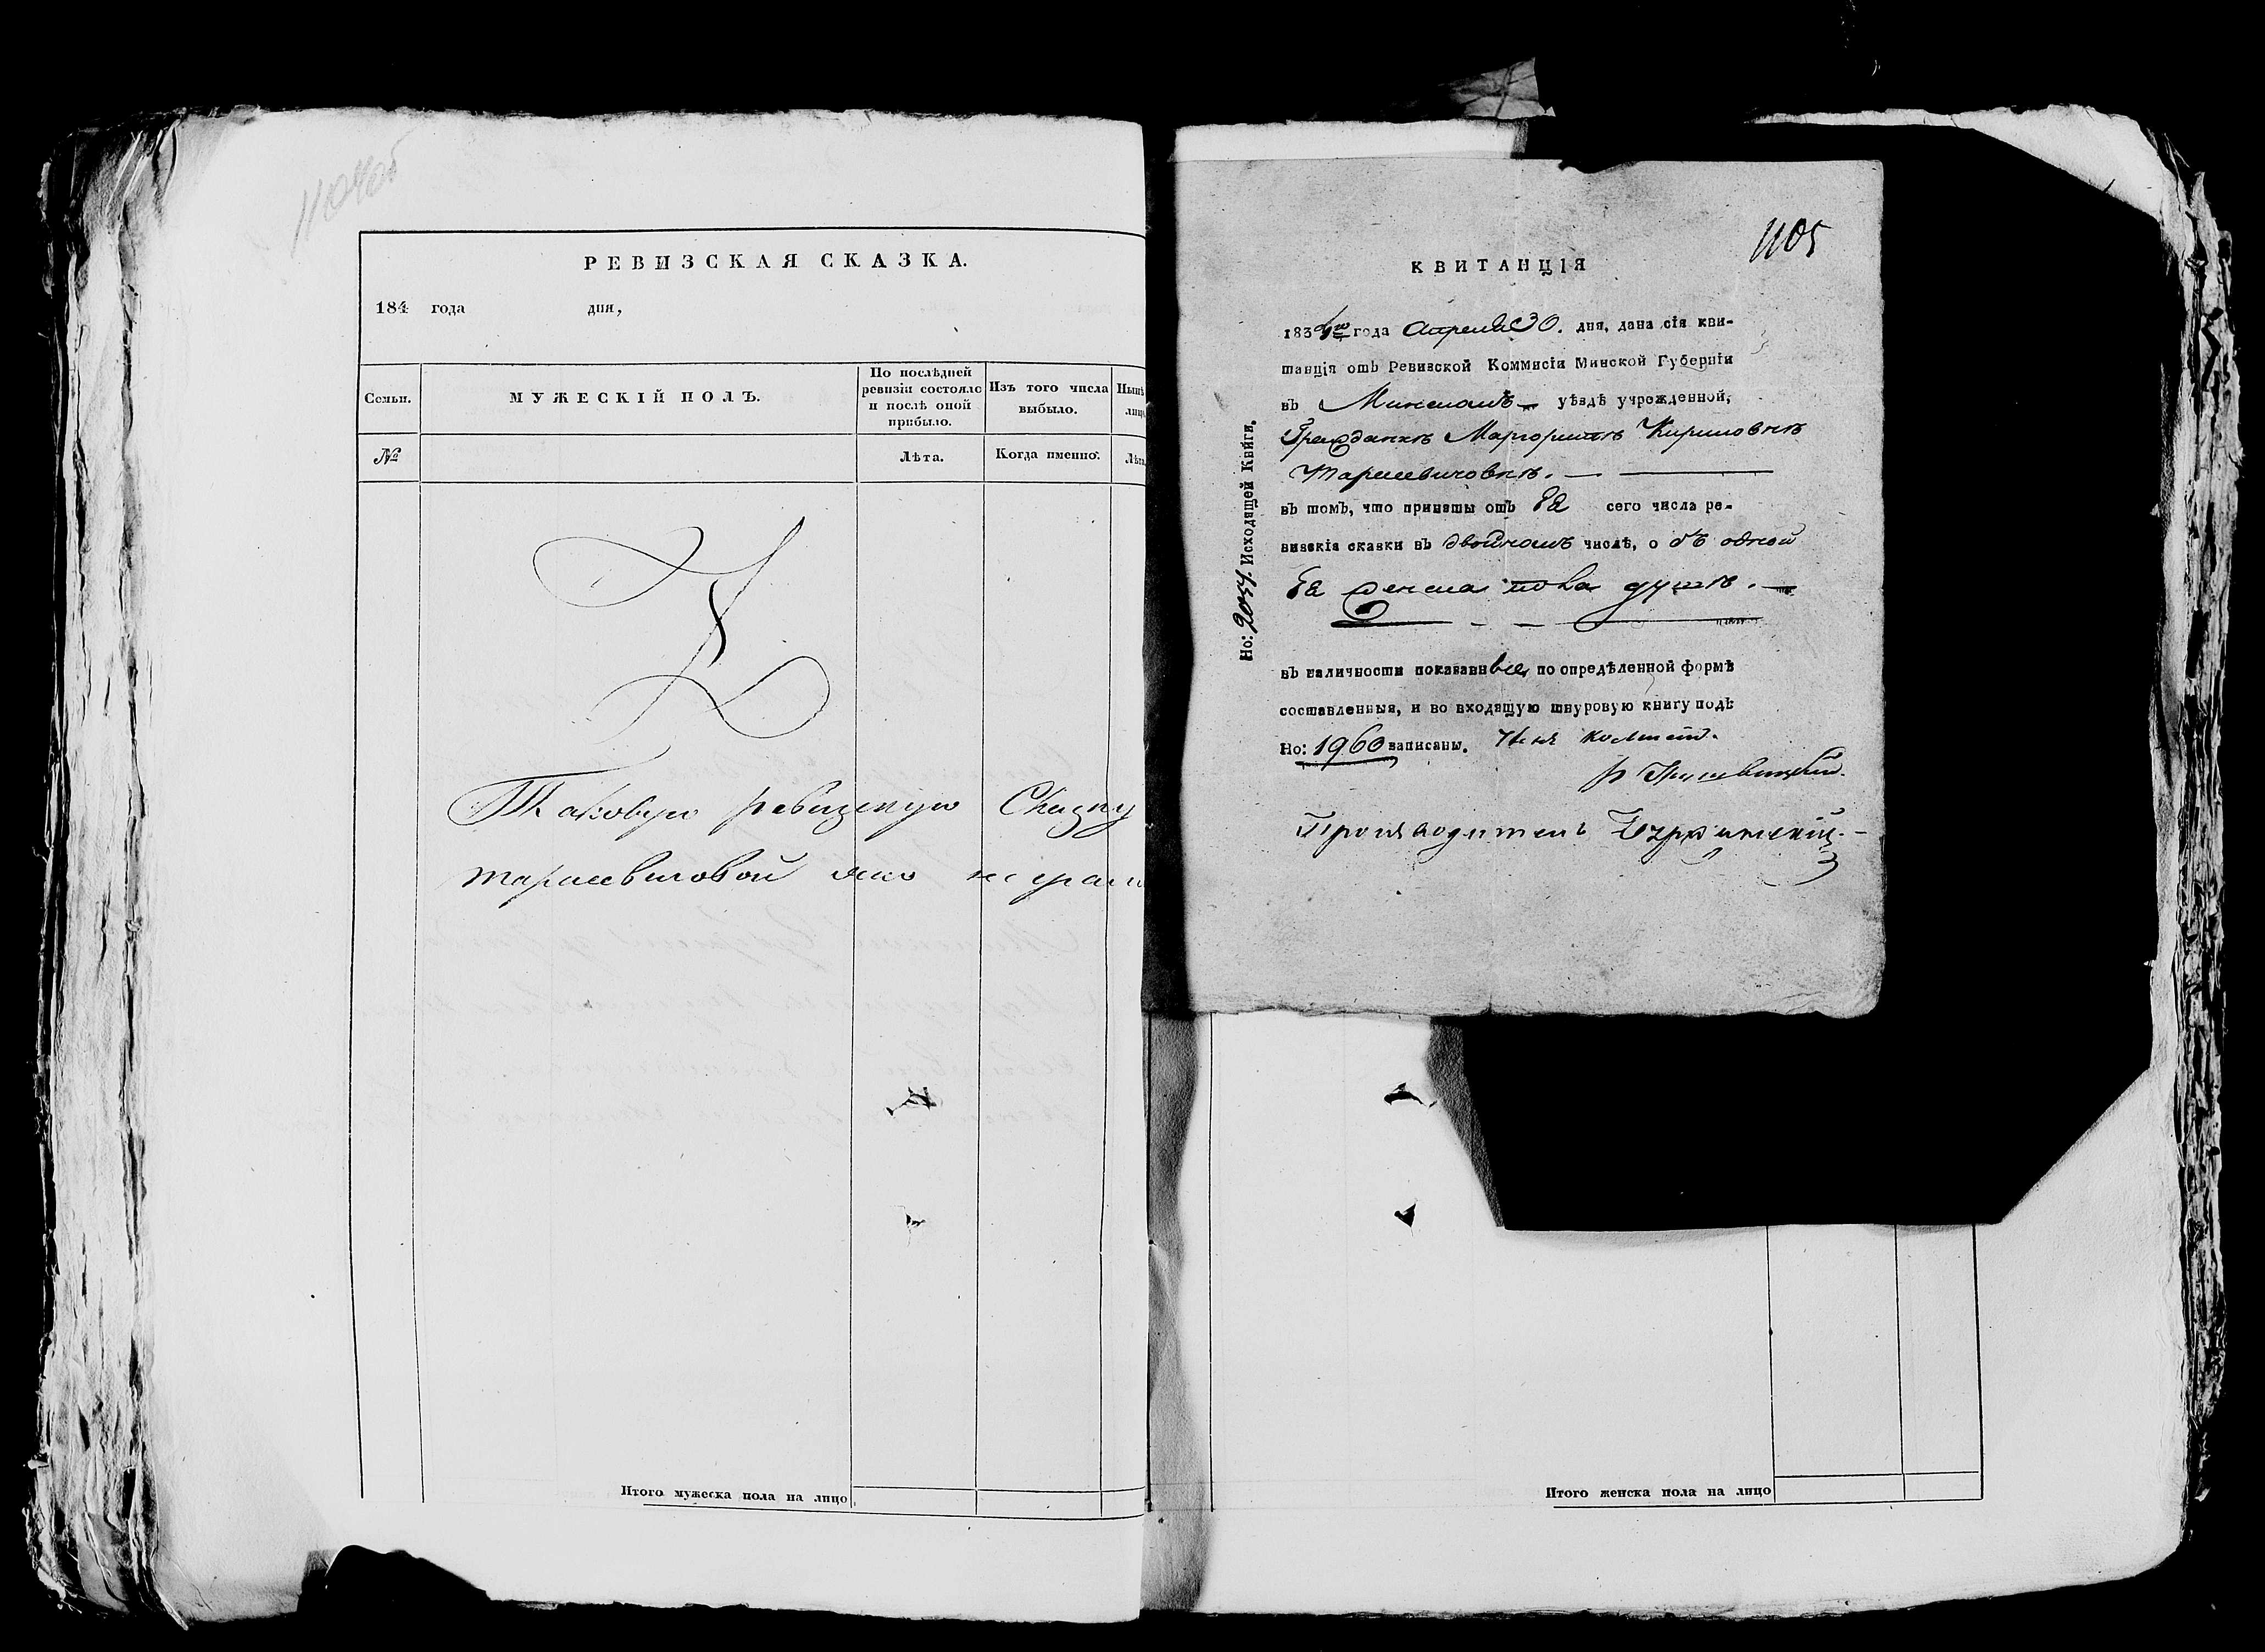 1104об
РЕВИЗСКАЯ СКАЗКА.
184 года дня,
Семьи.
МУЖЕСКІЙ ПОЛЪ.
По послѣдней ревизіи состояло и послѣ оной прибыло.
Изъ того числа выбыло.
№
Лѣта.
Когда именно.
Таковую ревизскую Сказку
тарасевичовой яко не грам
Итого мужеска пола на лицо
1105
КВИТАНЦІЯ
183 года Апреля 30. дня, дана сія кви-
танція отъ Ревизской Коммисіи Минской Губерніи
въ Минскомъ уѣздѣ учрежденной,
Гражданкѣ Маргоритѣ Кириловнѣ
Тарасевичовнѣ.
въ томъ, что приняты отъ Её сего числа ре-
визскія сказки въ двойномъ числѣ, о бъ одной
Её женска пола душѣ.
въ наличности показанные, по опредѣленной формѣ
составленныя, и во входящую шнуровую книгу подъ
Но: 1960 записаны.
Производитель
Но: 2054. Исходящей Книги.
Итого женска пола на лицо